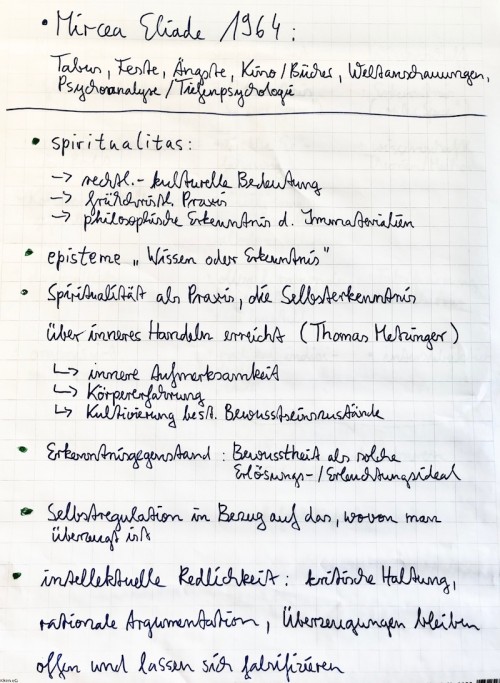 • Mircea Eliade 1964:
Tabus, Feste, Ängste, Kino/Bücher, Weltanschauungen,
Psychoanalyse/Tiefenpsychologie
• spiritualitas:
-> rechtl.-kulturelle Bedeutung
-> frühchristl. Praxis
-> philosophische Erkenntnis d. Immaterialien
• episteme „Wissen oder Erkenntnis"
• Spiritualität als Praxis, die Selbsterkenntnis
über inneres Handeln erreicht (Thomas Metzinger)
↳ innere Aufmerksamkeit
↳ Körpererfahrung
↳ Kultivierung best. Bewusstseinszustände
• Erkenntnisgegenstand: Bewusstheit als solche
Erlösungs-/Erleuchtungsideal
• Selbstregulation in Bezug auf das, wovon man
überzeugt ist
• intellektuelle Redlichkeit: kritische Haltung,
rationale Argumentation, Überzeugungen bleiben
offen und lassen sich falsifizieren